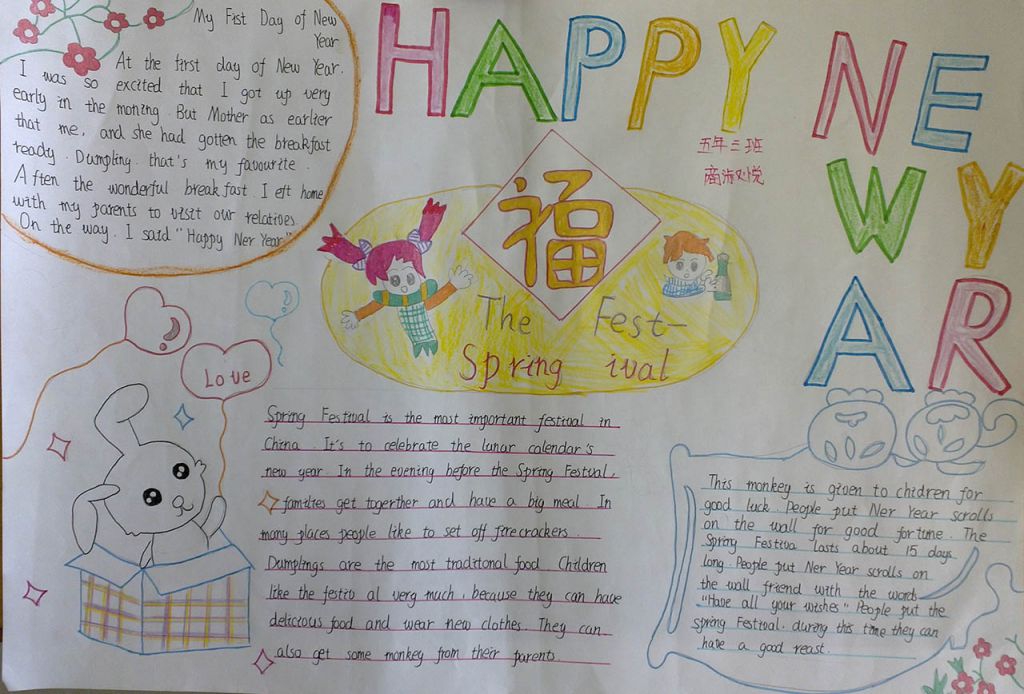 My Fist Day of New
Year
At the first day of New Year.
I was so excited that I got up very
early in the moning. But Mother as earlier
that me, and she had gotten the breakfast
ready. Dumpling. that's my favourite.
Aften the wonderful breakfast. I eft home
with my parents to visit our relatives.
On the way. I said "Happy Ner Year"
HAPPY NEW YEAR
五年三班
福
The Fest-
Spring ival
Love
Spring Festival is the most important festival in
China. It's to celebrate the lunar calendar's
new year. In the evening before the Spring Festval,
families get togerther and have a big meal. In
many places people like to set off firecrackers.
Dumplings are the most traditonal food Children
like the festiv al verg much, because they can have
delicious food and wear new clothes. They can
also get some monkey from their parents
This monkey is given to chidren for
good luck. People put Ner Year scrolls
on the wall for good fortime. The
Spring Festiva lasts about 15 days
long. People put Ner Year scrolls on
the wall friend with the words
"Have all your wishes" People put the
spring Festival. during this time they can
have a good reast.